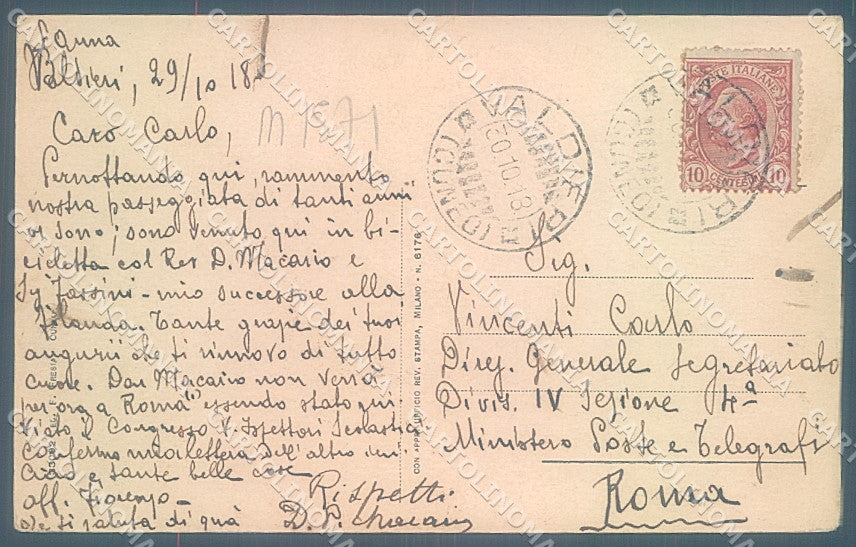 S. Anna
Valdieri, 29/10 18
Caro Carlo,
M 1571
Pernottando qui, rammento
nostra passeggiata di tanti anni
or sono; sono venuto qui in bi-
cicletta col Rev D. Macario e
Sig Fassini - mio successore alla
Tante grazie dei tuoi
augurii che ti rinnovo di tutto
cuore. Don Macario non verrà
per ora a Roma essendo stato rin-
viato il Congresso Ispettori Scolastici
Confermo mia lettera dell'altro ieri
Ciao e tante belle cose
aff. Fiorenzo -
che ti saluta di quà
Rispetti
D. P. Macario
CON APPR. UFFICIO REV. STAMPA, MILANO - N. 6176
VALDIERI
30.10.18
(CUNEO)
POSTE ITALIANE
10 CENTESIMI 10
VALDIERI
(CUNEO)
Sig.
Vincenti Carlo
Direz. Generale Segretariato
Divis. IV Sezione 4ª
Ministero Poste e Telegrafi
Roma
CARTOLINOMANIA